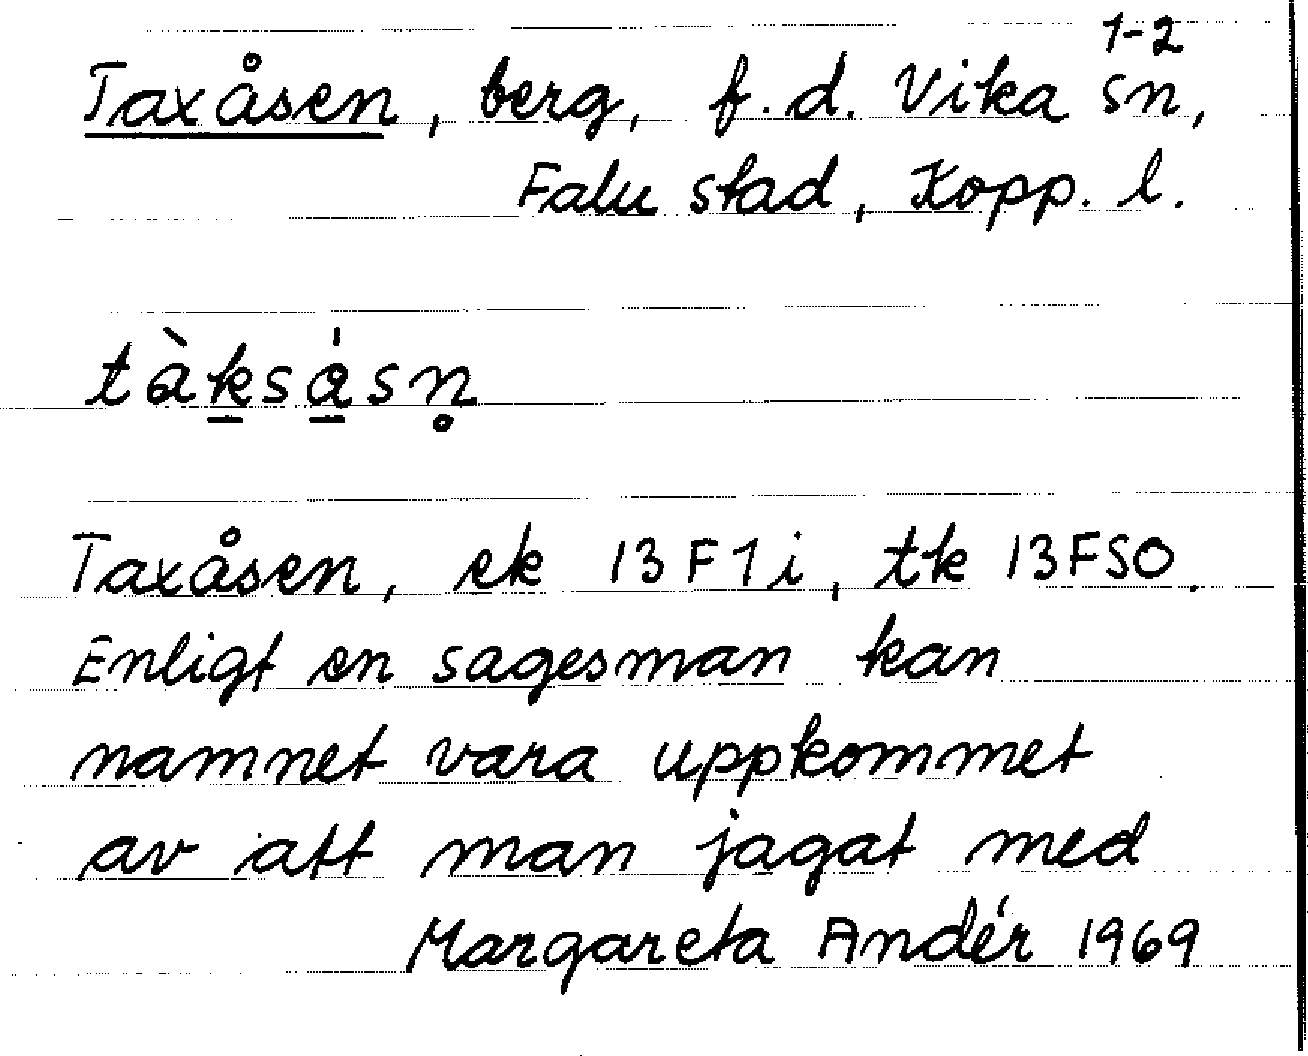 1-2
Taxåsen, berg, f.d. Vika sn,
Falu stad, Kopp. l.
tàk̲sá̲sn̥
Taxåsen, ek 13F1i, tk 13FSO.
Enligt en sagesman kan
namnet vara uppkommet
av att man jagat med
Margareta Andér 1969